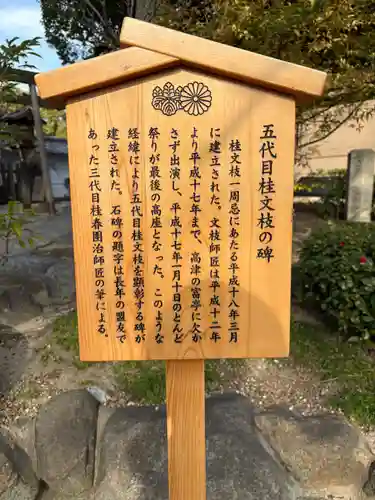 五代目桂文枝の碑
桂文枝一周忌にあたる平成十八年三月
に建立された。文枝師匠は平成十二年
より平成十七年まで、高津の富亭に欠か
さず出演し、平成十七年一月十日のとんど
祭りが最後の高座となった。このような
経緯により桂文枝を顕彰する碑が
建立された。石碑の題字は長年の盟友で
あった三代目桂春團治師匠の筆による。